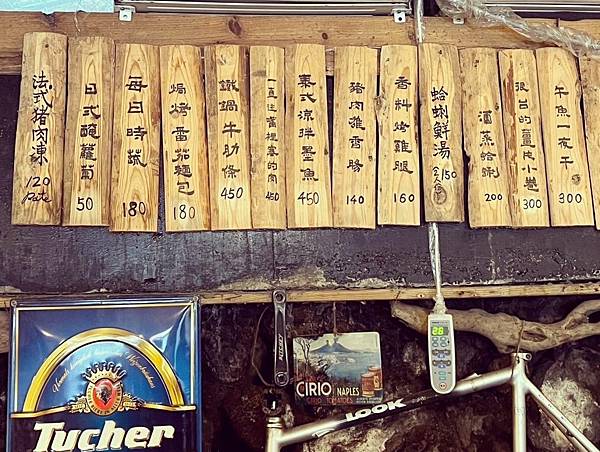 法式豬肉凍
120
Pate
日式醃蘿蔔
50
每日時蔬
180
焗烤番茄麵包
180
鐵鍋牛肋條
450
一直往嘴裡塞的肉
450
泰式涼拌墨魚
450
豬肉雜香腸
140
香料烤雞腿
160
蛤蜊鮮湯
150
2人份
酒蒸蛤蜊
200
很台的薑絲小卷
300
午魚一夜干
300
Tucher
CIRIO
NAPLES
CIRIO TOMATOES
LOOK
28